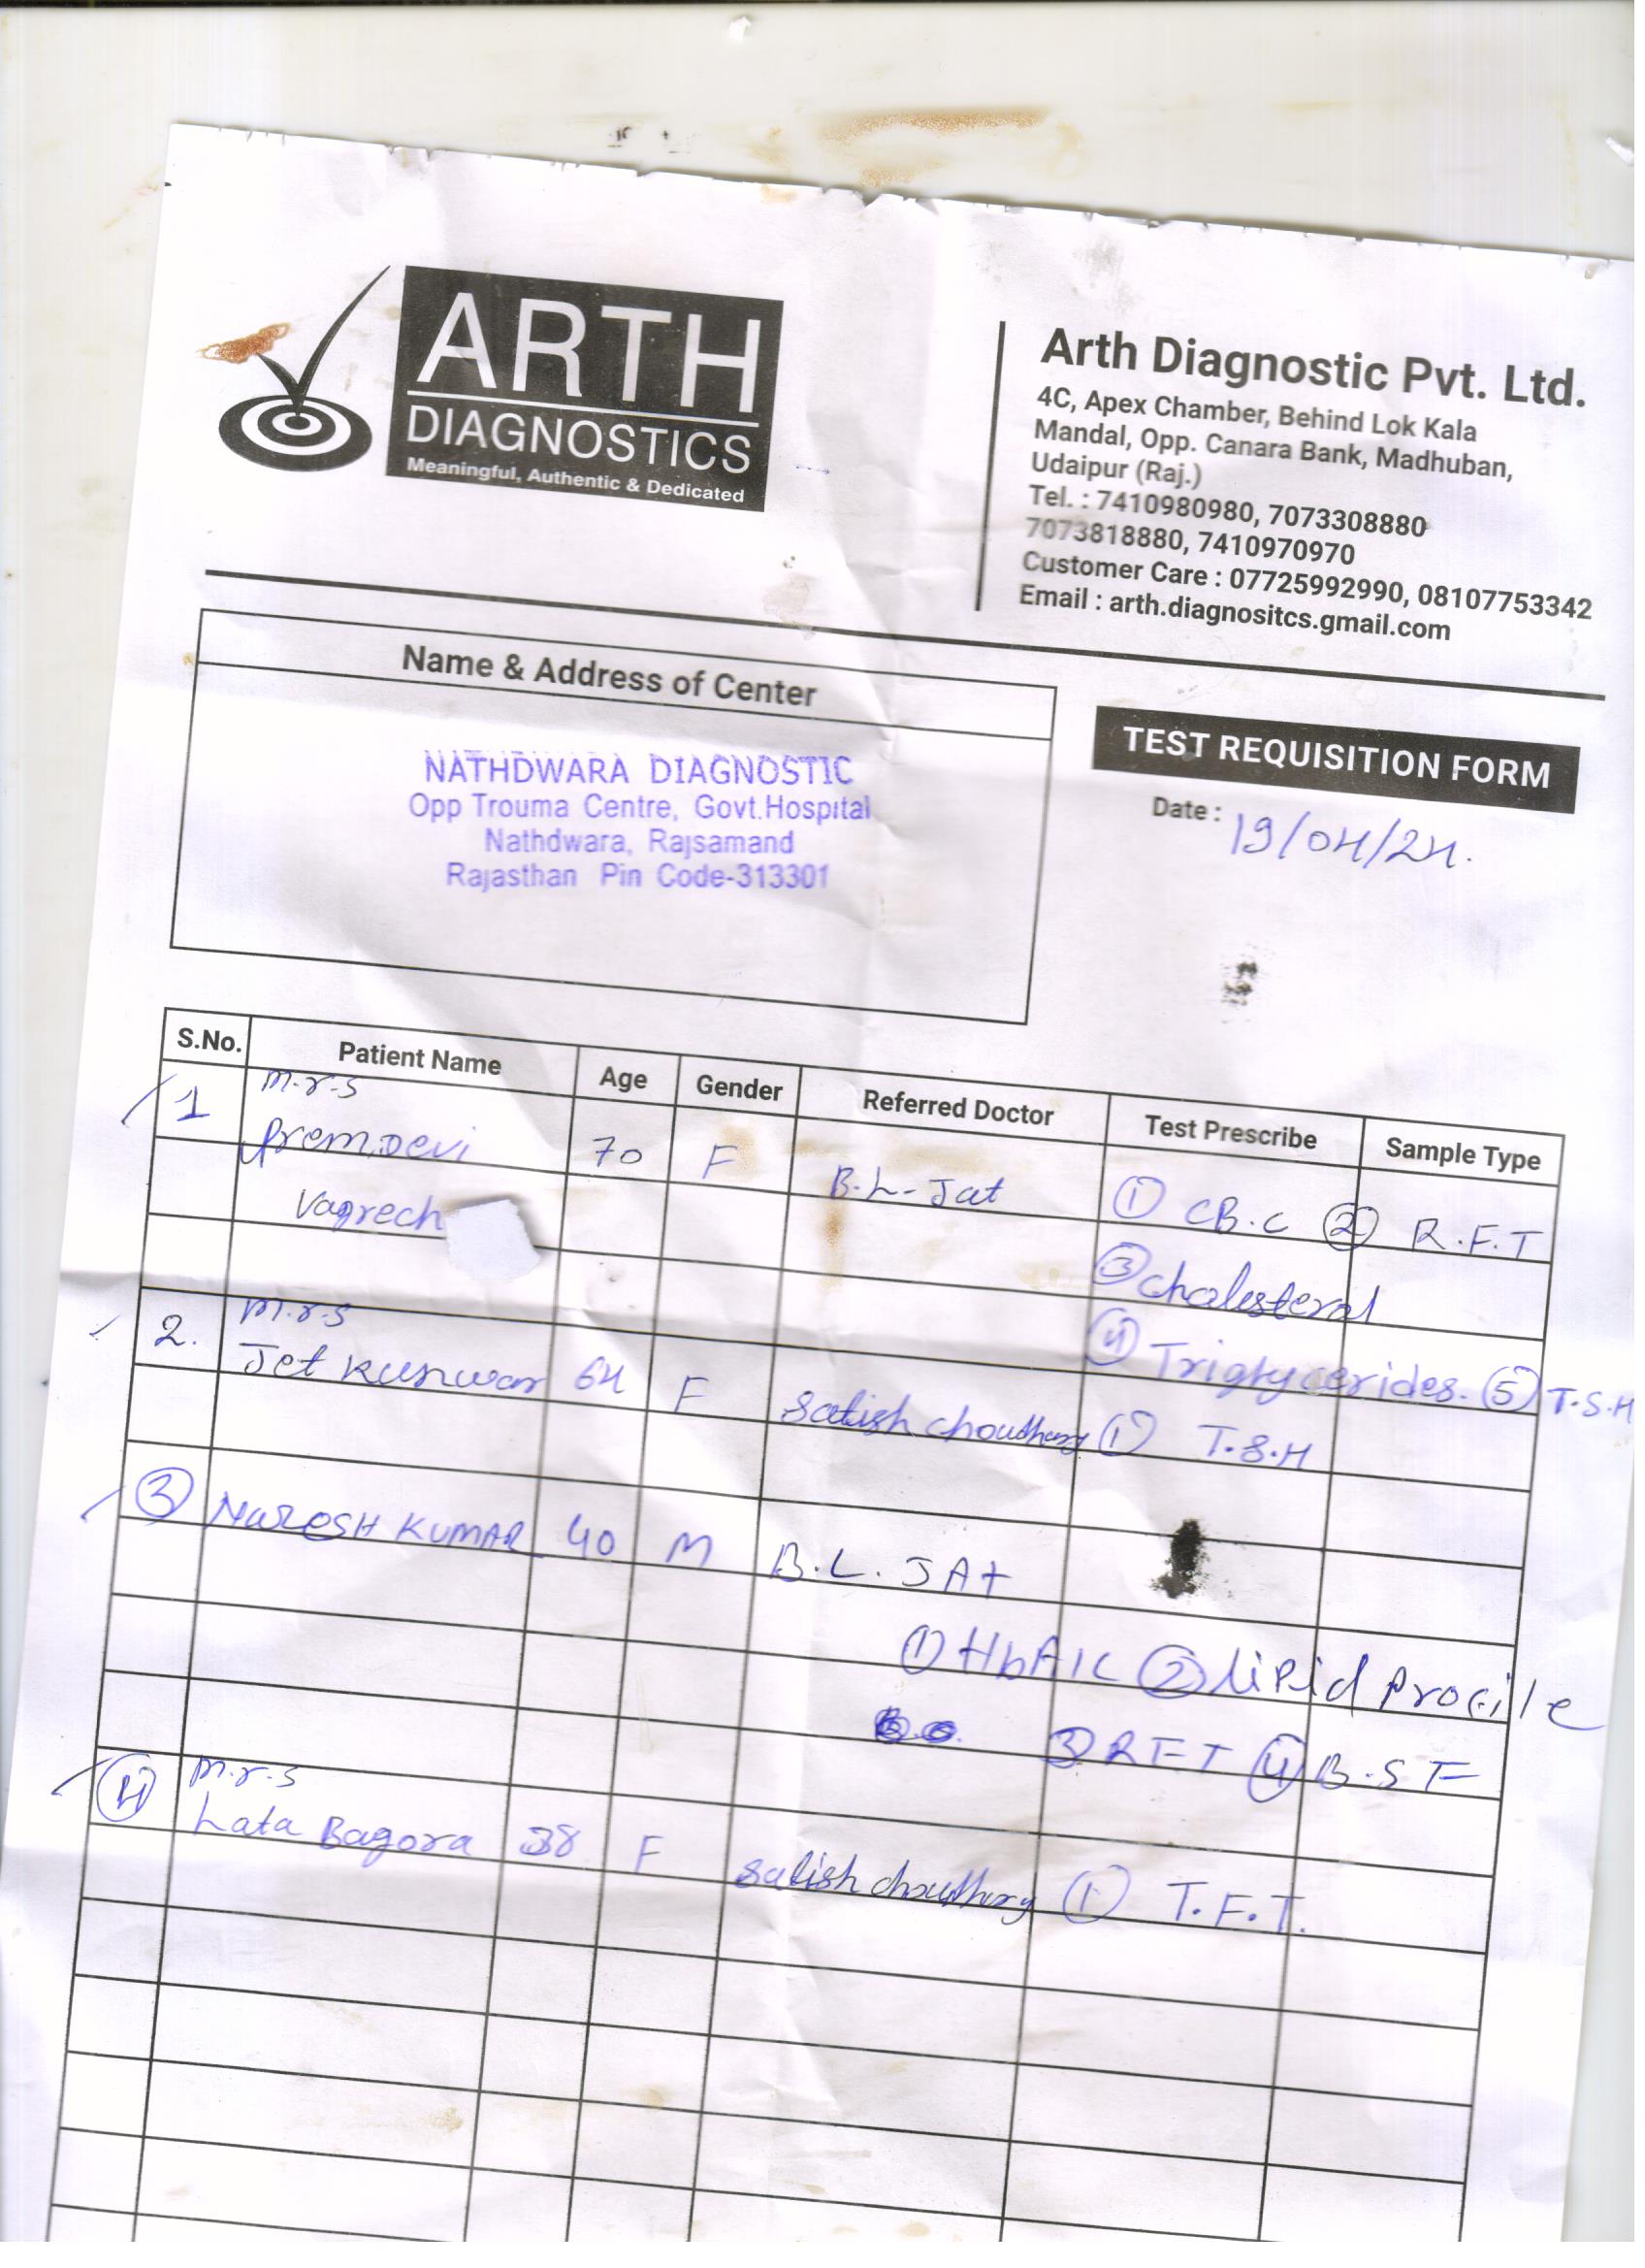 ARTH
DIAGNOSTICS
Meaningful, Authentic & Dedicated
Arth Diagnostic Pvt. Ltd.
4C, Apex Chamber, Behind Lok Kala
Mandal, Opp. Canara Bank, Madhuban,
Udaipur (Raj.)
Tel. : 7410980980, 7073308880
7073818880, 7410970970
Customer Care : 07725992990, 08107753342
Email : arth.diagnositcs.gmail.com
Name & Address of Center
NATHDWARA DIAGNOSTIC
Opp Trouma Centre, Govt.Hospital
Nathdwara, Rajsamand
Rajasthan Pin Code-313301
TEST REQUISITION FORM
Date : 19/04/24.
S.No. Patient Name Age Gender Referred Doctor Test Prescribe Sample Type
1 m.r.s
Prem Devi 70 F B.L-Jat ① CB.C ② R.F.T
Vagrech
③ Cholesterol
④ Triglycerides. ⑤ T.S.H
2. m.r.s
Jet Kunwar 64 F Satish choudhary ① T.S.H
③ NARESH KUMAR 40 M B.L. JAt
① HbA1C ② liPid Profile
③ RFT ④ B.S F
④ m.r.s
Lata Bagora 38 F Satish choudhary ① T.F.T.